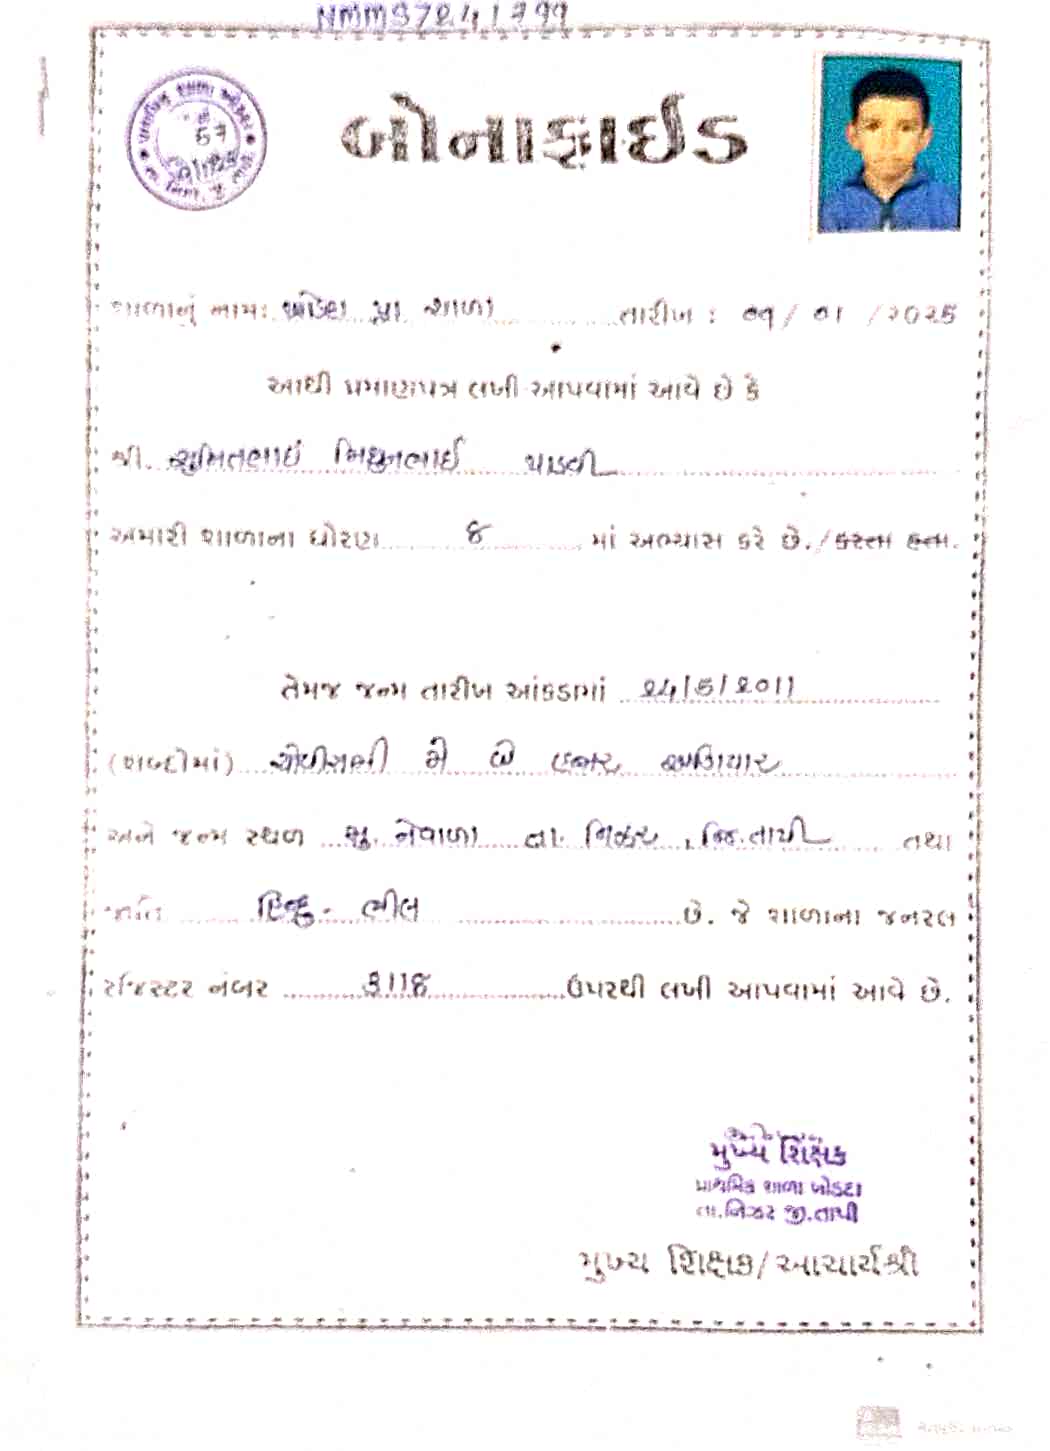 NMMS7241799
બોનાફાઈડ
57
શાળાનું નામ: પ્રા શાળા તારીખ : 09/ 01 /2025
આથી પ્રમાણપત્ર લખી આપવામાં આવે છે કે
શ્રી. સુમિતભાઇ મિથુનભાઈ પાડવી
અમારી શાળાના ધોરણ ૪ માં અભ્યાસ કરે છે./કરતા હતા.
તેમજ જન્મ તારીખ આંકડામાં 24/5/2011
(શબ્દોમાં) ચોવીસમી મે બે હજાર અગિયાર
અને જન્મ સ્થળ મુ. નેવાળા તા. નિઝર , જિ.તાપી તથા
જાતિ હિન્દુ - ભીલ છે. જે શાળાના જનરલ
રજિસ્ટર નંબર ઉપરથી લખી આપવામાં આવે છે.
મુખ્ય શિક્ષક
પ્રાથમિક શાળા ખોડદા
તા.નિઝર જી.તાપી
મુખ્ય શિક્ષક/આચાર્યશ્રી